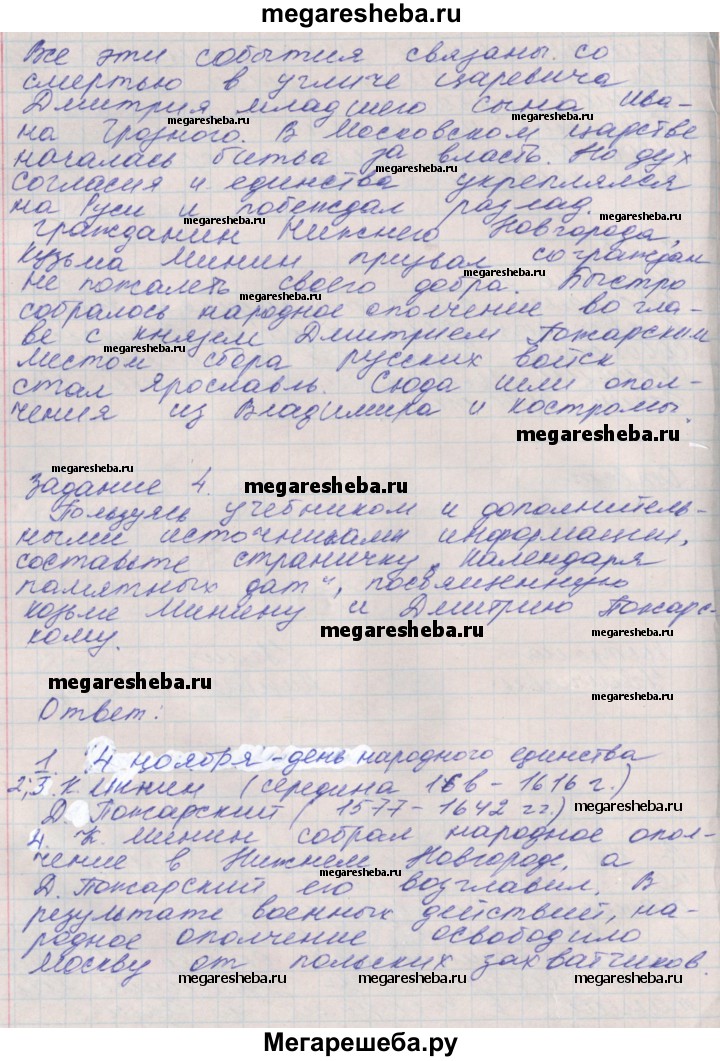 megaresheba.ru
Все эти события связаны со
смертью в угличе царевича
Дмитрия младшего сына Ива-
megaresheba.ru
на Грозного. В Московском царстве
началась битва за власть. Но дух
megaresheba.ru
согласия и единства укреплялся
на Руси и побеждал разлад.
megaresheba.ru
megaresheba.ru
Гражданин Нижнего Новгорода,
Кузьма Минин призвал сограждан
megaresheba.ru
не пожалеть своего добра. Быстро
megaresheba.ru
собралось народное ополчение во гла-
ве с князем Дмитрием Пожарским
megaresheba.ru
местом сбора русских войск
стал Ярославль. Сюда шли опол-
чения из Владимира и Костромы.
megaresheba.ru
megaresheba.ru
Задание 4.
megaresheba.ru
Пользуясь учебником и дополнитель-
ными источниками информации,
составьте страничку „календаря
памятных дат“, посвященную
козьме Минину и Дмитрию Пожарс-
кому.
megaresheba.ru
megaresheba.ru
megaresheba.ru
Ответ:
1. 4 ноября - день народного единства
2,3. К. Минин (середина 16в - 1616 г.)
Д. Пожарский (1577 - 1642 гг)
megaresheba.ru
4. К. Минин собрал народное опол-
megaresheba.ru
чение в Нижнем Новгороде, а
megaresheba.ru
Д. Пожарский его возглавил. В
результате военных действий, на-
родное ополчение освободило
Москву от польских захватчиков.
megaresheba.ru
megaresheba.ru
Мегарешеба.ру